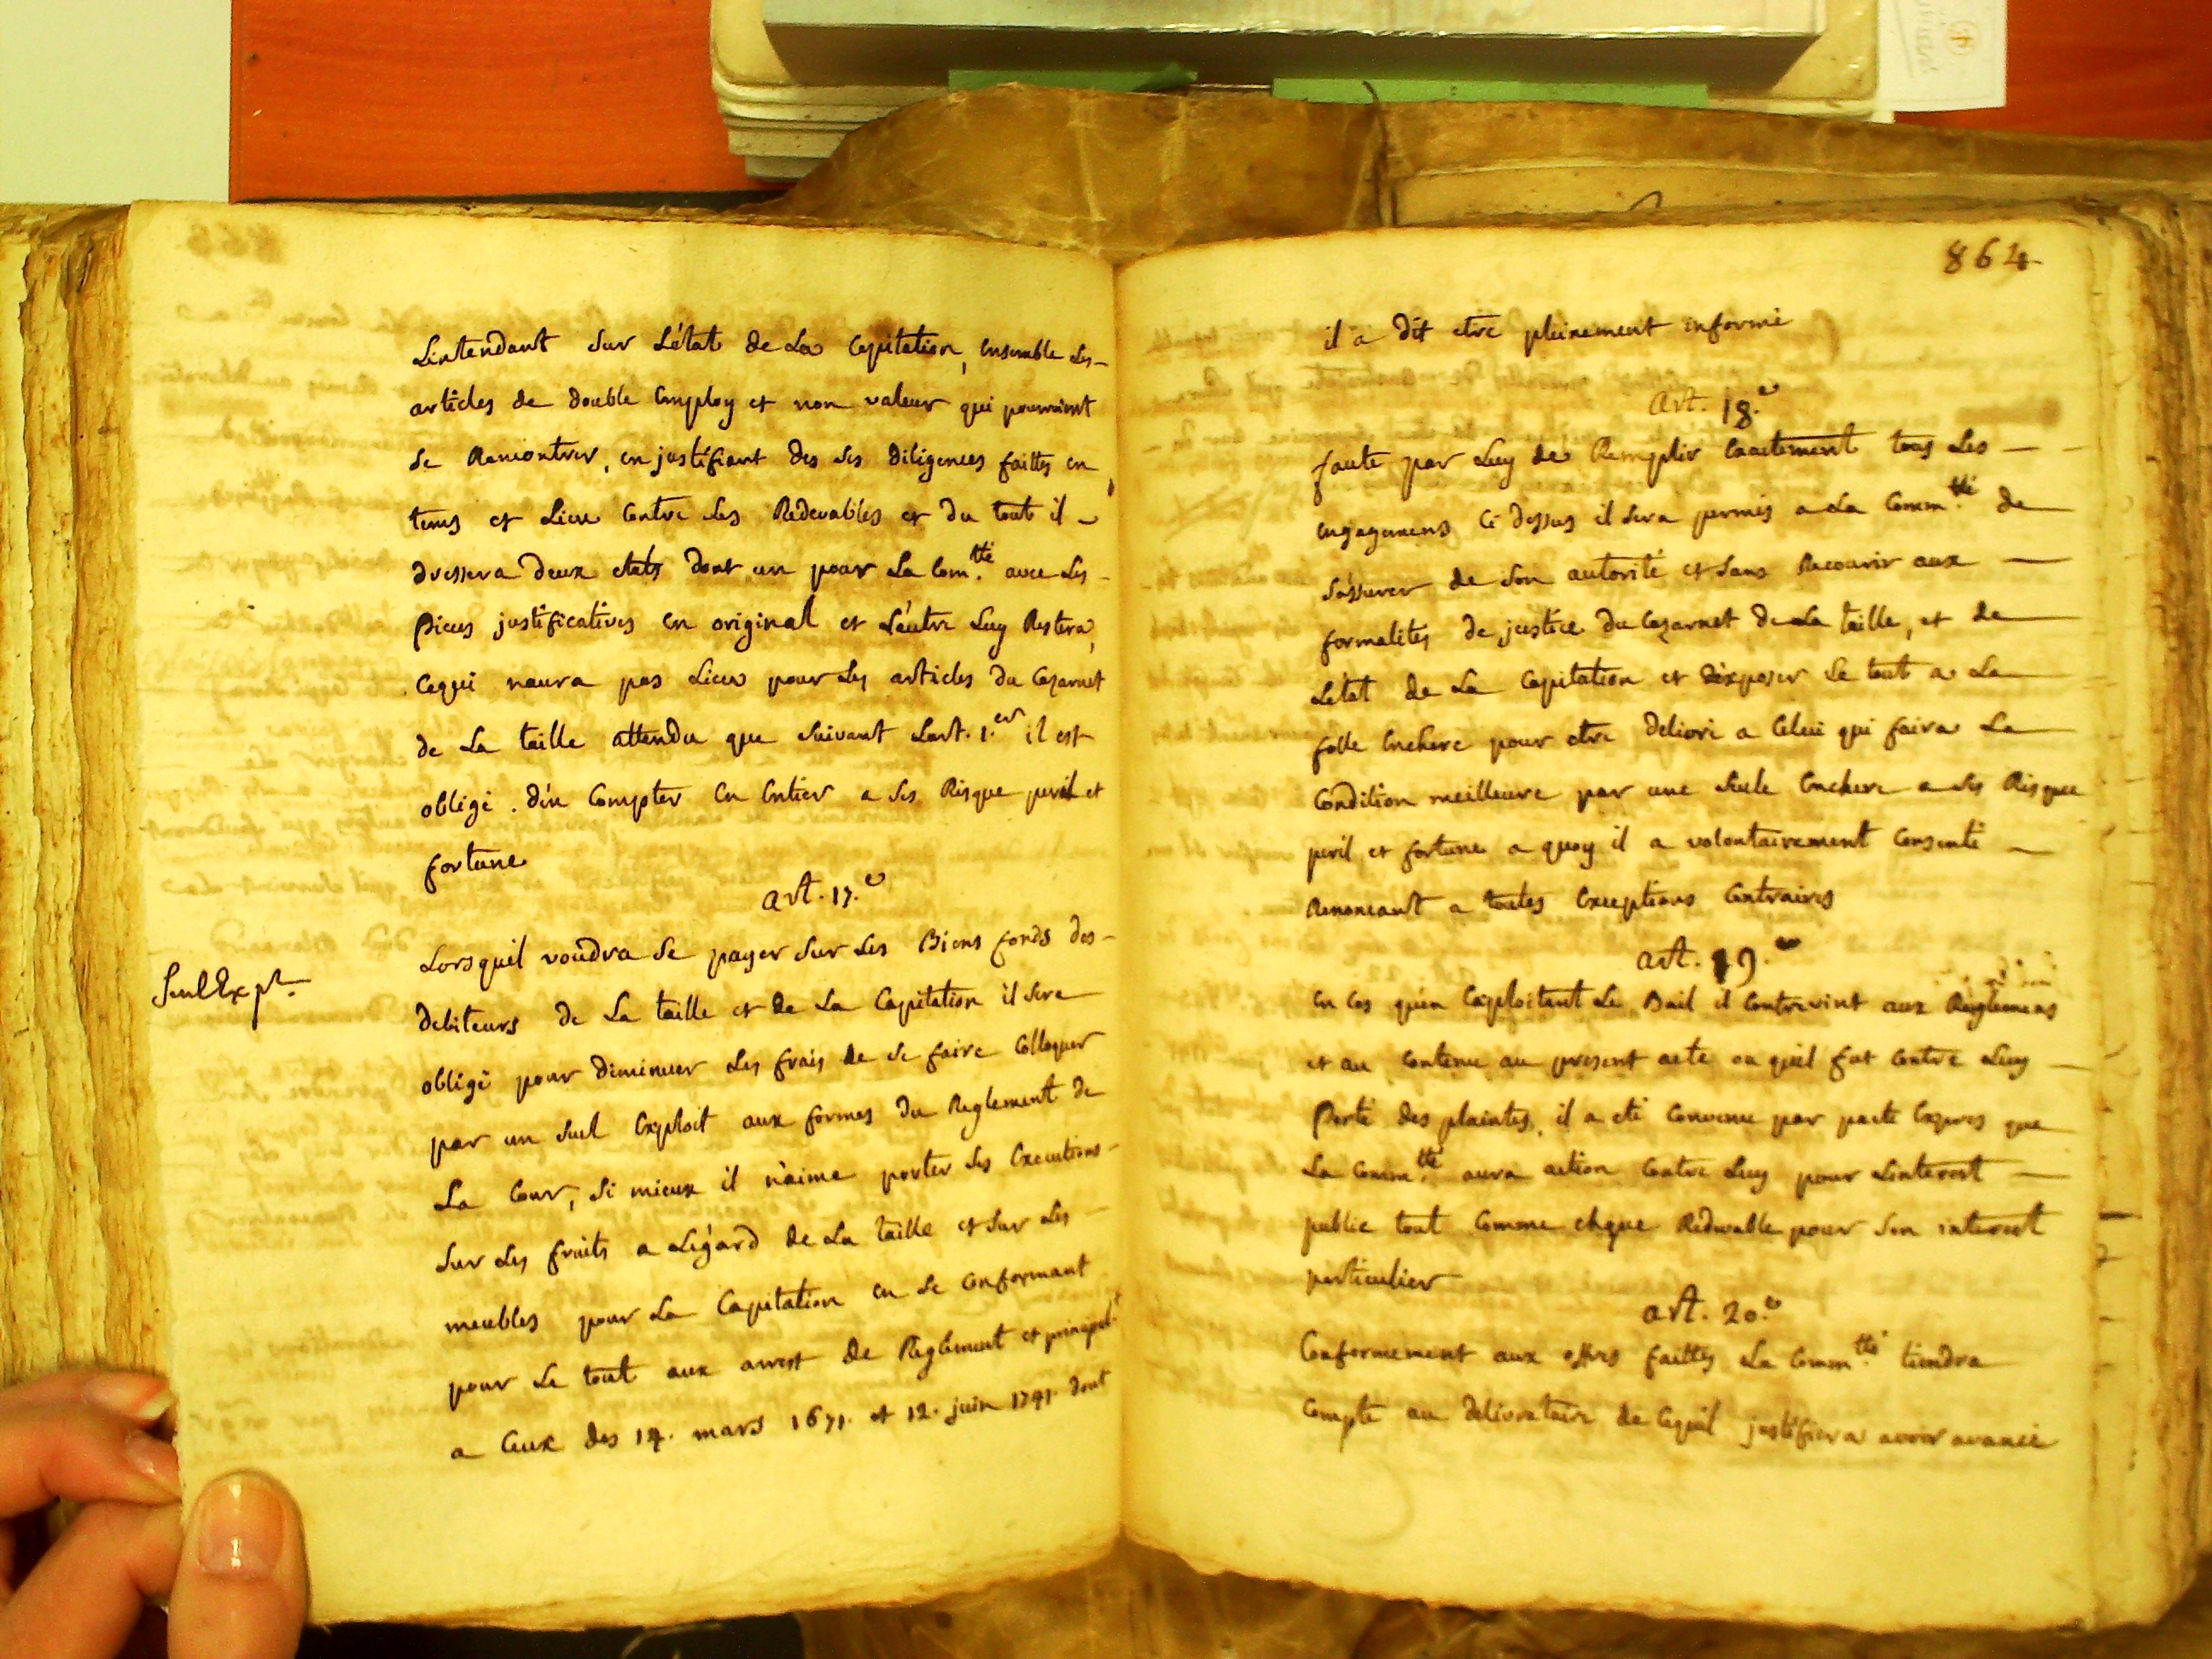 Lintendant sur L'état de La Capitation, Ensemble Les
articles de double Employ et non valeur qui pourroint
se Rencontrer, en justifiant des ses diligences faittes en
tems et Lieu Contre Les Redevables et du tout il
dressera deux etats dont un pour La Com.tté avec Les
Pieces justificatives en original et L'autre Luy Restera,
Cequi naura pas Lieu pour Les articles du Cazarnet
de La taille attendu que suivant Lart. 1.er il est
obligé d'en Compter En Entier a ses Risque peril et
fortune
art. 17.e
Seul Expt.
Lorsquil voudra se payer sur Les Biens fonds des
debiteurs de La taille et de La Capitation il sera
obligé pour diminuer Les frais de se faire Colloquer
par un seul Exploit aux formes du Reglement de
La Cour, si mieux il n'aime porter ses Executions
sur Les fruits a Legard de La taille et sur Les
meubles pour La Capitation en se Conformant
pour Le tout aux arrest de Reglement et principalt
a Ceux des 14. mars 1671. et 12. juin 1741. dont
864
il a dit etre pleinement informé
art. 18.e
faute par Luy de Remplir Exactement tous Les
engagemens Ci dessus il sera permis a La Comm.tté de
s'assurer de son autorité et sans Recourir aux
formalités de justice du Cazarnet de La taille, et de
Letat de La Capitation et d'exposer Le tout a La
folle Enchere pour etre delivré a Celui qui faira La
Condition meilleure par une seule Enchere a ses Risque
peril et fortune a quoy il a volontairement Consenti
Renonceant a toutes Exceptions Contraires
art. 19.e
En Cas qu'en Exploitant Le Bail il Contrevint aux Reglemens
et au Contenu au present acte ou quil fut Contre Luy
Porté des plaintes, il a eté Convenu par pacte Expres que
La Comm.tté aura action Contre Luy pour Linterest
public tout Comme chque Redevable pour son interest
particulier
art. 20.e
Conformement aux offres faittes La Comm.tté tiendra
Compte au delivrataire de Cequil justifiera avoir avancé